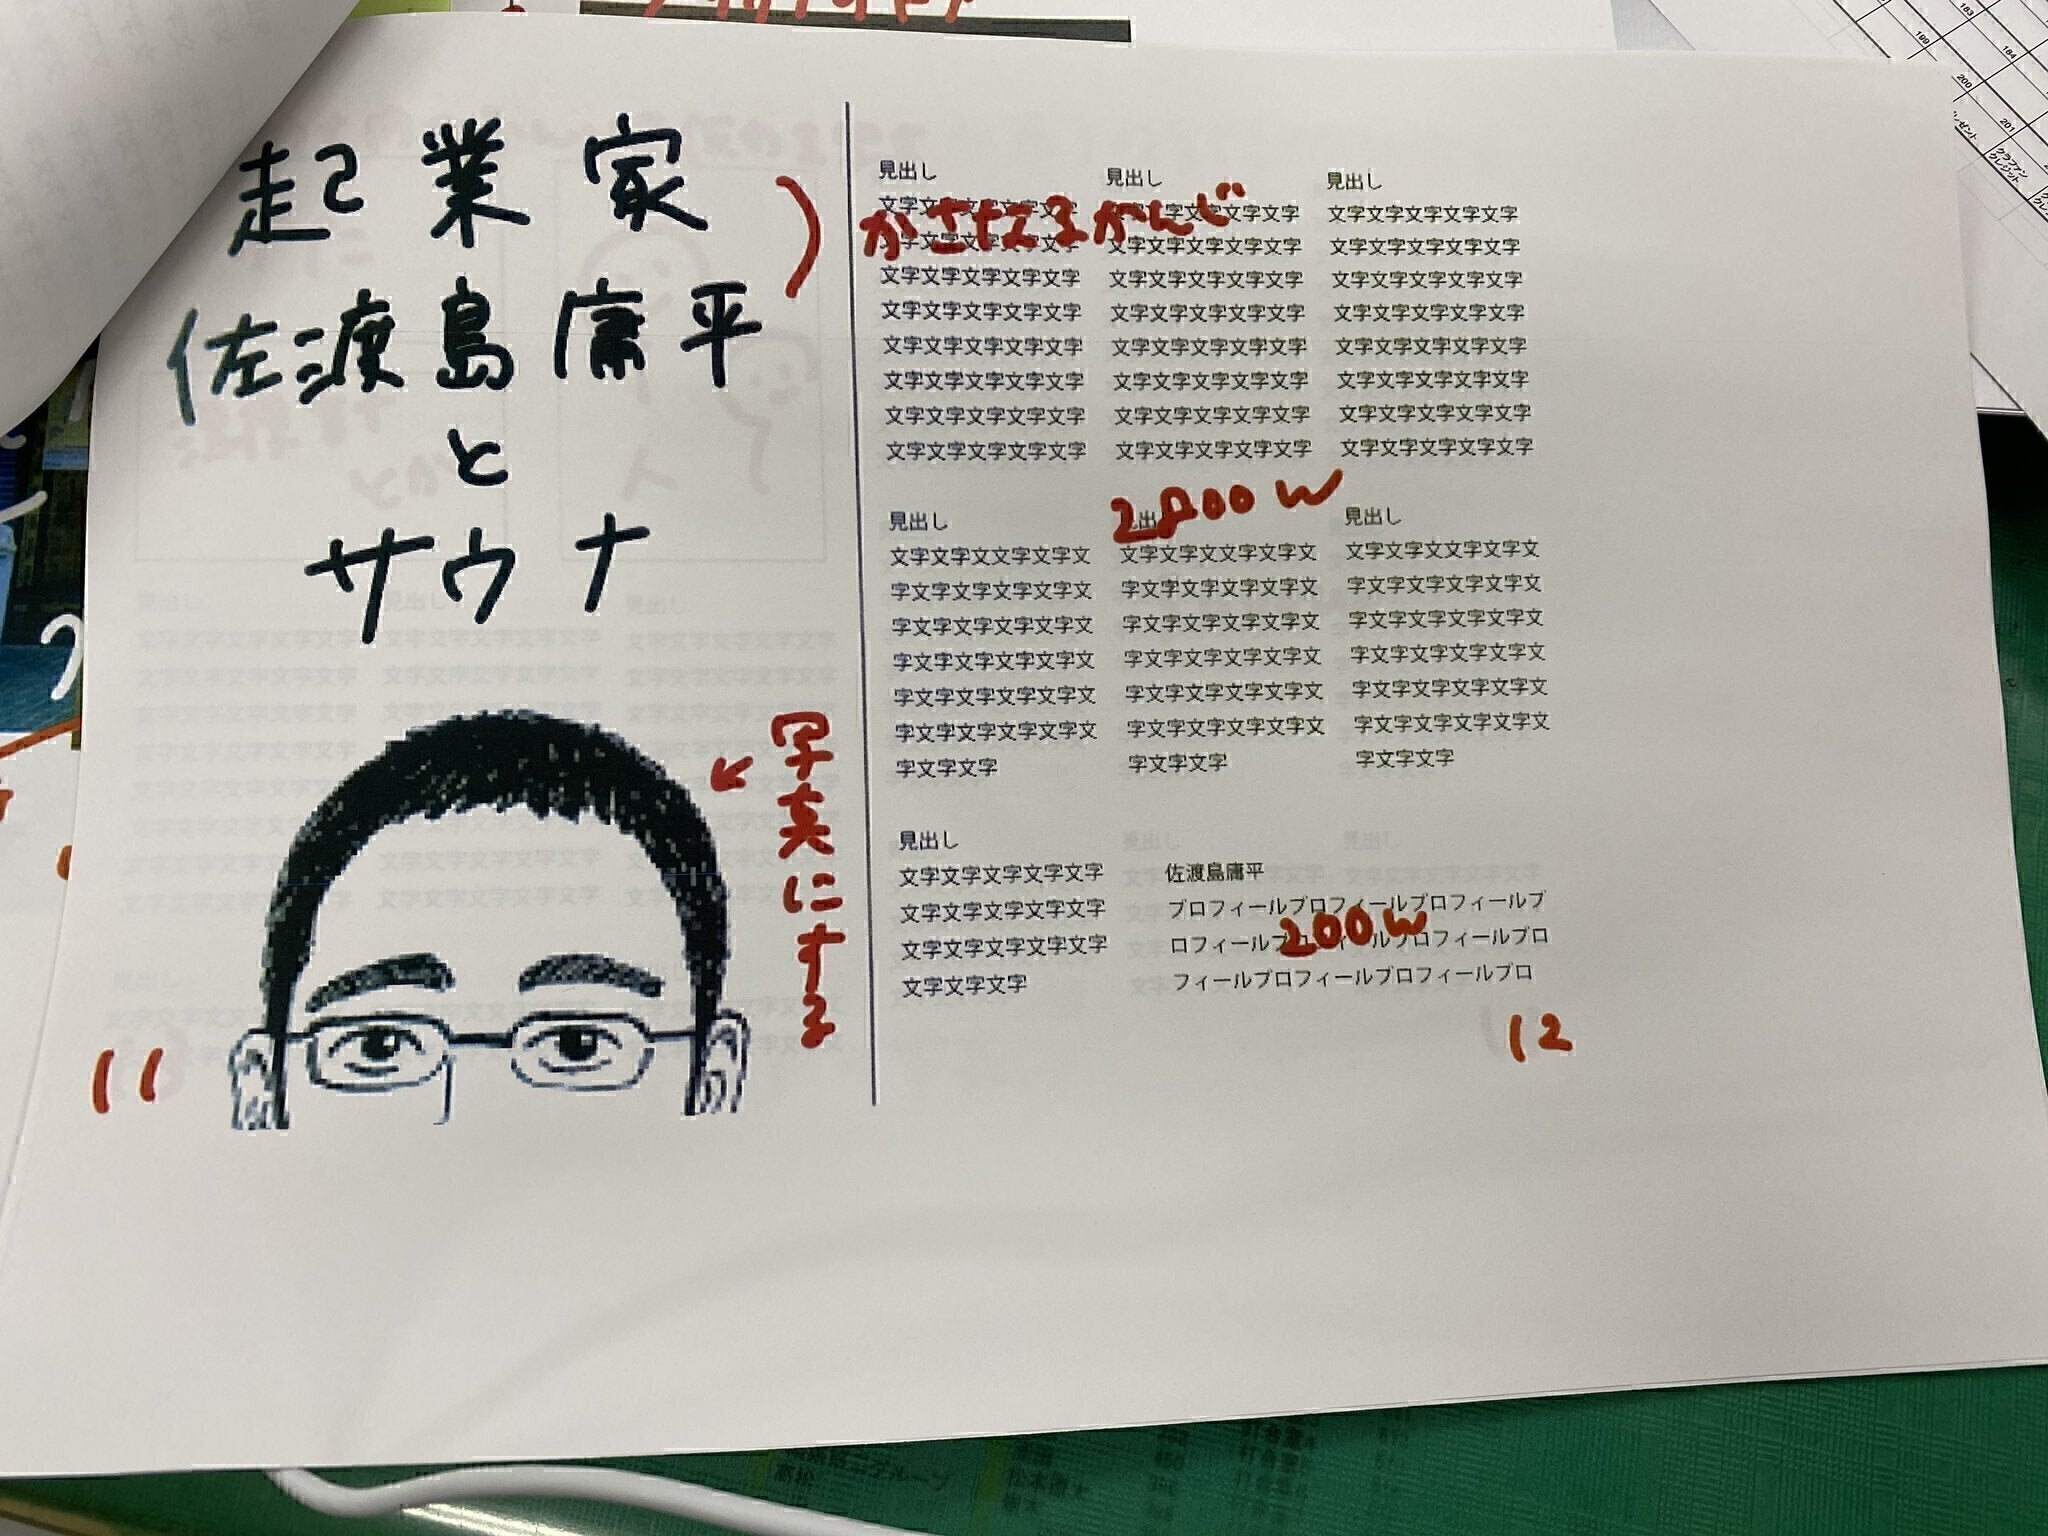 起業家
佐渡島庸平
と
サウナ
写真にする
11
見出し
文字文字文字文字文字
文字文字文字文字文字
文字文字文字文字文字
文字文字文字文字文字
文字文字文字文字文字
文字文字文字文字文字
文字文字文字文字文字
見出し
文字文字文字文字文字
文字文字文字文字文字
文字文字文字文字文字
文字文字文字文字文字
文字文字文字文字文字
文字文字文字文字文字
見出し
文字文字文字文字文字
文字文字文字文字文字
文字文字文字文字文字
文字文字文字文字文字
文字文字文字文字文字
文字文字文字文字文字
文字文字文字文字文字
文字文字文字文字文字
かさねるかんじ
見出し
文字文字文文字文字文
字文字文字文字文字文
字文字文字文字文字文
字文字文字文字文字文
字文字文字文字文字文
字文字文字文字文字文
字文字文字
2800w
文字文字文文字文字文
字文字文字文字文字文
字文字文字文字文字文
字文字文字文字文字文
字文字文字文字文字文
字文字文字文字文字文
字文字文字
見出し
文字文字文文字文字文
字文字文字文字文字文
字文字文字文字文字文
字文字文字文字文字文
字文字文字文字文字文
字文字文字文字文字文
字文字文字
見出し
文字文字文字文字文字
文字文字文字文字文字
文字文字文字文字文字
文字文字文字
佐渡島庸平
プロフィールプロフィールプロフィールプ
ロフィールプロフィールプロフィールプロ
フィールプロフィールプロフィールプロ
200w
12